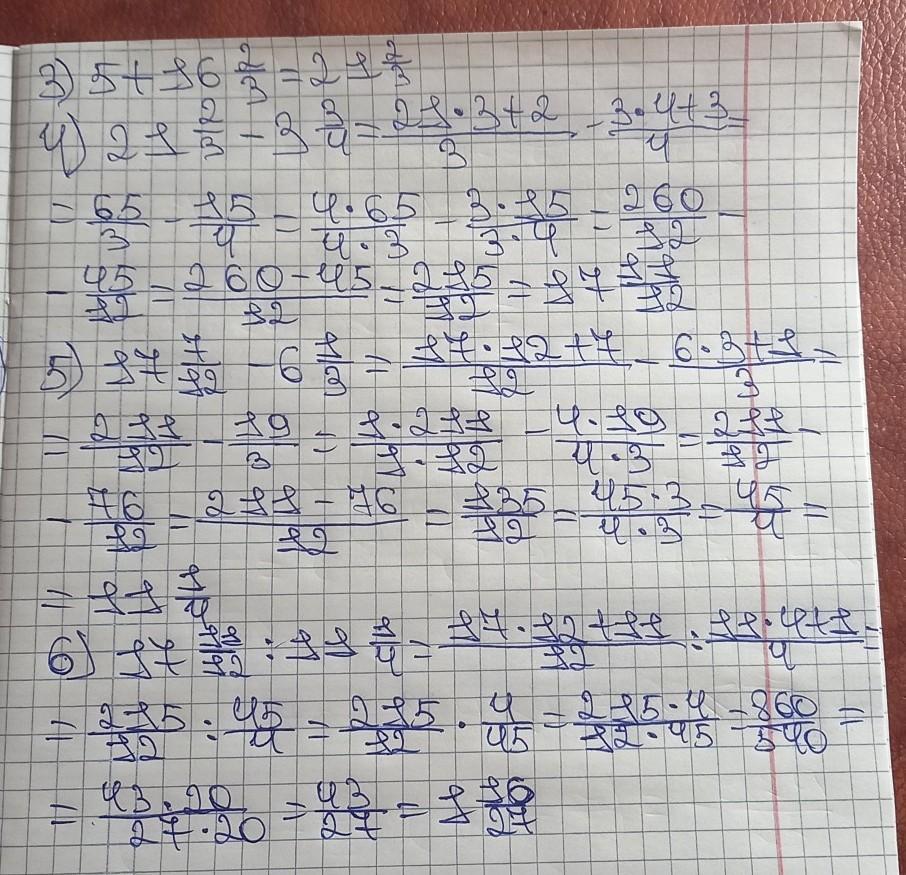 3) 5 + 16 2/3 = 21 2/3
4) 21 2/3 - 3 3/4 = (21·3+2)/3 - (3·4+3)/4 =
= 65/3 - 15/4 = (4·65)/(4·3) - (3·15)/(3·4) = 260/12 -
- 45/12 = (260-45)/12 = 215/12 = 17 11/12
5) 17 7/12 - 6 1/3 = (17·12+7)/12 - (6·3+1)/3 =
= 211/12 - 19/3 = (1·211)/(1·12) - (4·19)/(4·3) = 211/12 -
- 76/12 = (211-76)/12 = 135/12 = (45·3)/(4·3) = 45/4 =
= 11 1/4
6) 17 11/12 : 11 1/4 = (17·12+11)/12 : (11·4+1)/4 =
= 215/12 : 45/4 = 215/12 · 4/45 = (215·4)/(12·45) = 860/540 =
= (43·20)/(27·20) = 43/27 = 1 16/27